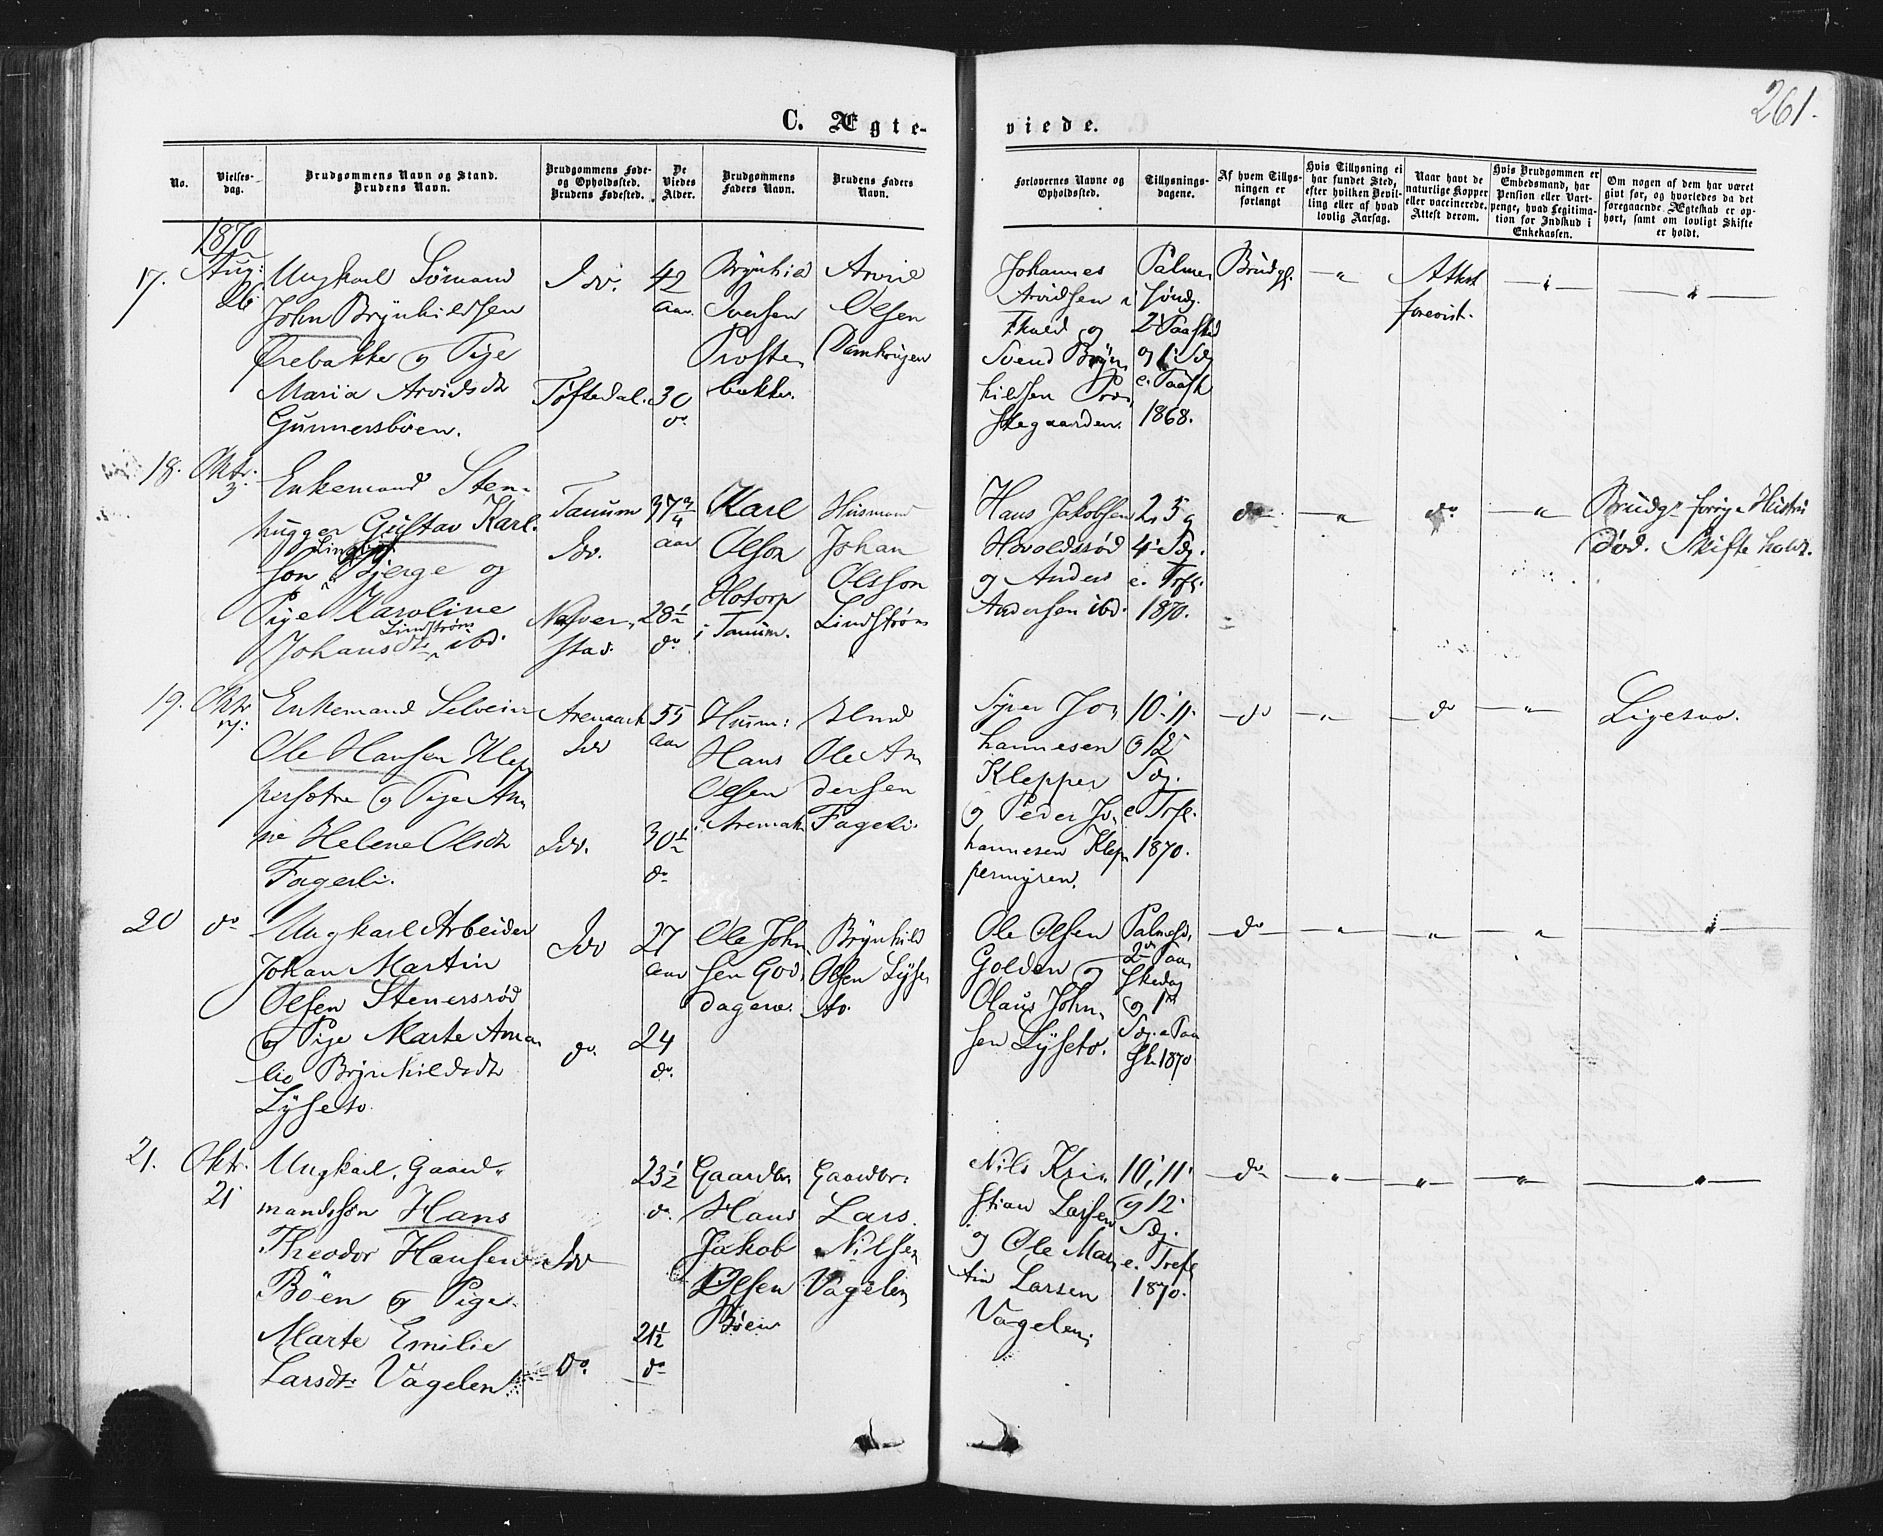 261.
C. Ægteviede.
No.
Vielsesdag.
Brudgommens Navn og Stand.
Brudens Navn.
Brudgommens Føde-
og Opholdssted.
Brudens Fødested.
De
Viedes
Alder.
Brudgommens
Faders Navn.
Brudens Faders
Navn.
Forlovernes Navne og
Opholdssted.
Tillysnings-
dagene.
Af hvem Tillys-
ningen er
forlangt
Hvis Tillysning ei
har fundet Sted,
efter hvilken Bevil-
ling eller af hvad
lovlig Aarsag.
Naar havt de
naturlige Kopper
eller vaccinerede.
Attest derom.
Hvis Brudgommen er
Embedsmand, har
Pension eller Vart-
penge, hvad Legitima-
tion for Indskud i
Enkekassen.
Om nogen af dem har været
gift før, og hvorledes da det
foregaaende Ægteskab er op-
hørt, samt om lovligt Skifte
er holdt.
1870
17.
Aug:
26
Ungkarl Sømand
John Brynhildsen
Præbakke og Pige
Maria Arvidsdtr
Gunnersbøen.
Idd.
Tøftedal.
42
aar
30
do
Brynhild
Iversen
Præste
bakke.
Arvid
Olsen
Damhaugen
Johannes
Arvidsen i
Fkald og
Svend Bryn
hildsen Præ
stegaarden.
Palme
sønd.
2 Paaskd
og 1 Sdg
e. Paask
1868.
Brudg.
"
Attest
forevist.
"
"
18.
Oktr.
3
Enkemand Sten-
hugger Gustav Karl-
son Bjerge og
Pige Karoline
Lindstrøm
Johansdtr ibd.
Tanum
Idd.
Næver
stad.
37 3/4
aar
28 1/2
do
Karl
Olson
Hotorp
i Tanum.
Husmand
Johan
Olsson
Lindstrøm
Hans Jakobsen
Hovoldsrød
og Anders
Andersen ibd.
2, 3 og
4 Sdg.
e. Trefl.
1870.
do
"
do
"
Brudgs forrige Hustru
død. Skifte holdt.
19.
Oktr
7:
Enkemand Selveier
Ole Hansen Klep
persætre og Pige An
ne Helene Olsdtr
Fagerli.
Aremark
Idd
Idd.
55
aar
30 1/2
do
Husm:
Hans
Olsen
i Aremark
Ole An
dersen
Fageli.
Syver Jo
hannesen
Klepper
og Peder Jo
hannesen Klep
permyren.
10, 11
og 12
Sdg.
e Trfl.
1870.
do
"
do
"
Ligesaa.
20
do
Ungkarl Arbeider
Johan Martin
Olsen Stenersrød
og Pige Marte Ama
lia Brynhildsdtr
Lyseto.
Idd
do.
27
aar
24
do.
Ole John
sen God
dagen.
Brynhild
Olsen Lyse
to.
Ole Olsen
Golden og
Olaus John
sen Lyseto.
Palmesd,
2den Paa
skedag
og 1ste
Sdg. e Paa
sk 1870
do
"
"
"
"
21.
Oktr.
21
Ungkarl, Gaard
mandssøn Hans
Theodor Hansen
Böen og Pige
Marte Emilie
Larsdtr Vagelen
Idd
Do.
23 1/2
do.
21 1/2
do
Gaardbr
Hans
Jakob
Olsen
Böen
Gaardbr:
Lars
Nilsen
Vagelen
Nils Kri
stian Larsen
og Ole Mar
tin Larsen
Vagelen.
10, 11
og 12
Sdg.
e. Trefl
1870.
do
"
"
"
"